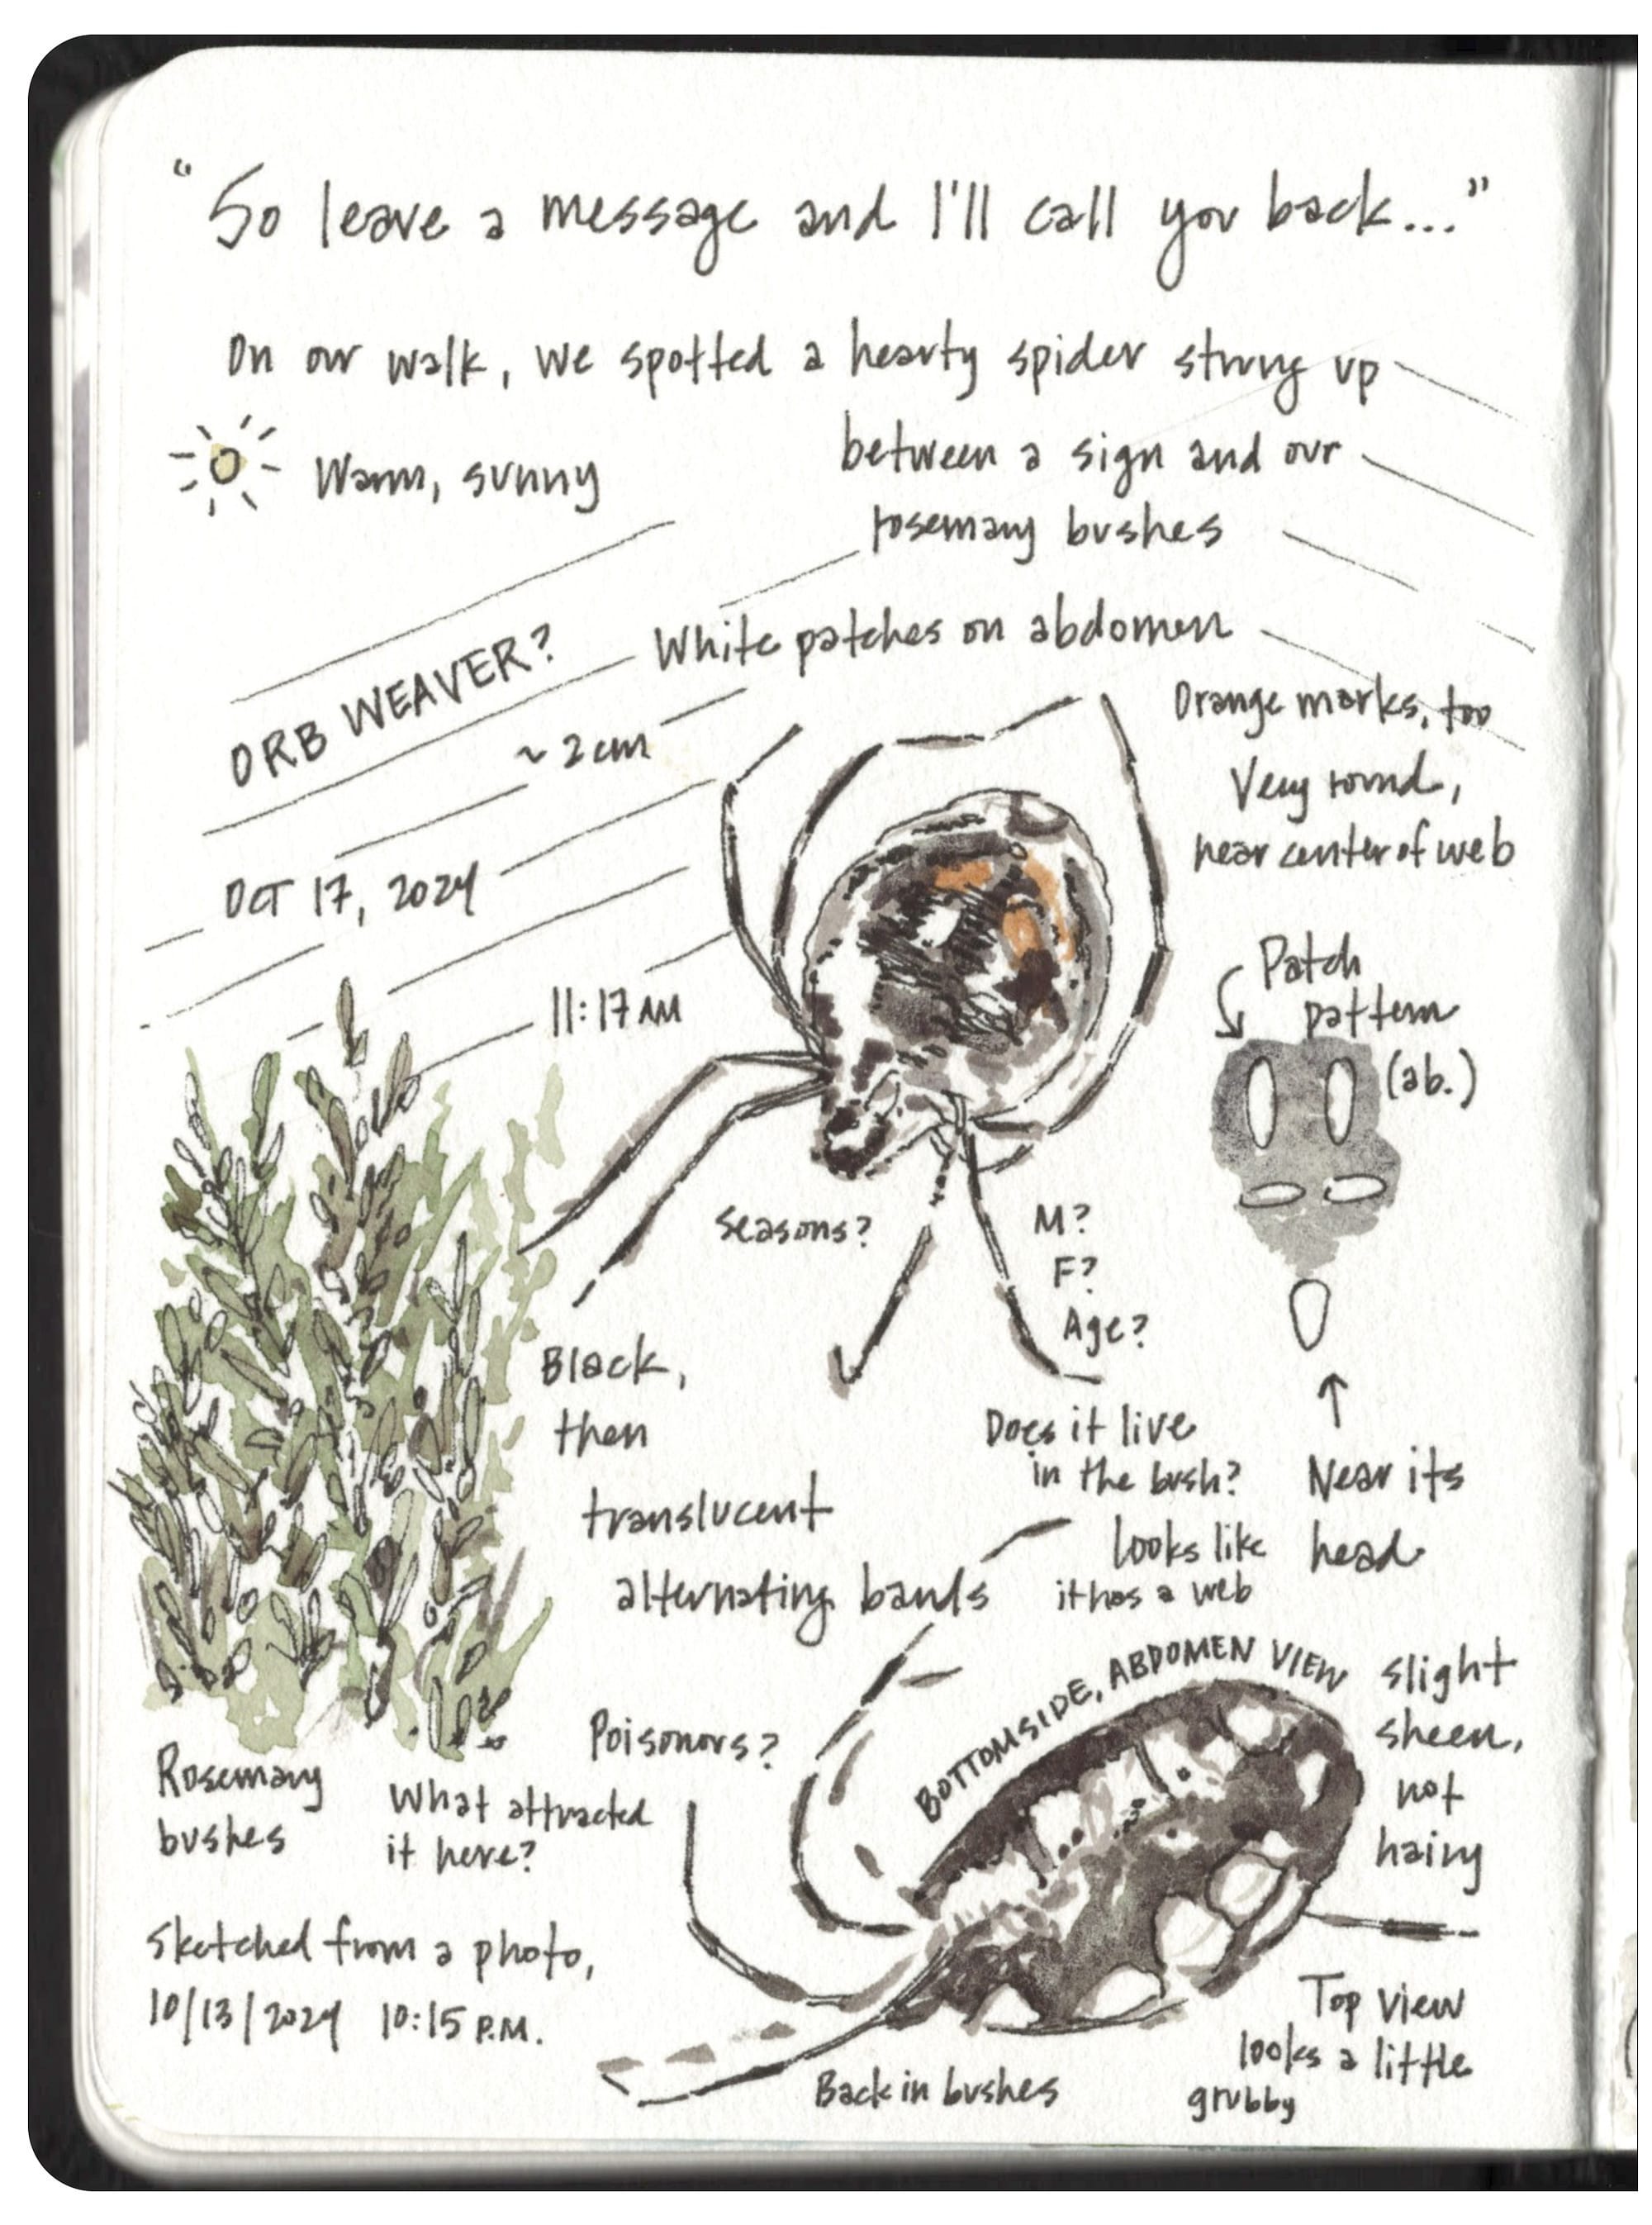 "So leave a message and I'll call you back..."
On our walk, we spotted a hearty spider strung up
between a sign and our
rosemary bushes
Warm, sunny
White patches on abdomen
ORB WEAVER?
~2cm
Orange marks, too
Very round,
near center of web
OCT 17, 2024
11:17 AM
Patch
pattern
(ab.)
Seasons?
M?
F?
Age?
Near its
head
Black,
then
translucent
alternating bands
Does it live
in the bush?
looks like
it has a web
BOTTOMSIDE, ABDOMEN VIEW
slight
sheen,
not
hairy
Poisonous?
Rosemary
bushes
What attracted
it here?
Sketched from a photo,
10/13/2024 10:15 P.M.
Back in bushes
Top view
looks a little
grubby